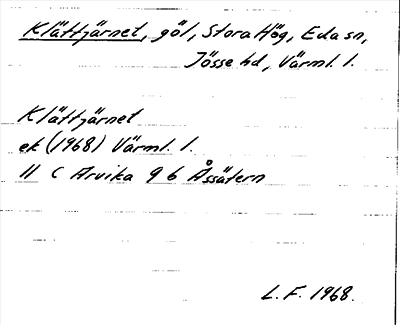 Klättjärnet, göl, Stora Hög, Eda sn,
Jösse hd, Värml. l.
Klättjärnet
ek (1968) Värml. l.
11 C Arvika 9 b Åssätern
L.F. 1968.